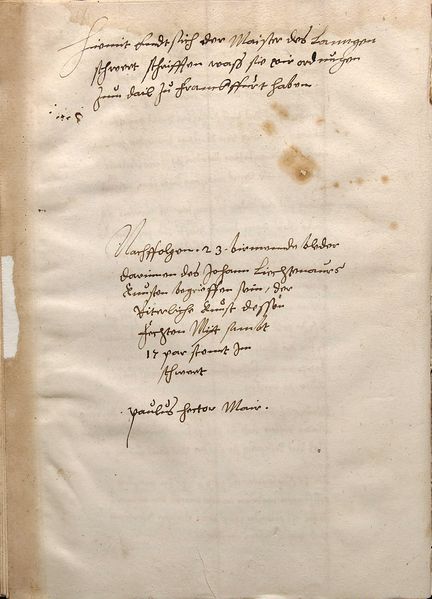 Hiemit Endt sich der Maister des Lanngen
schwert schrifften wass sie vir ordnungen
Inn dail zu Franckffurt haben
Nachffolgen 23 birmende bleder
darinnen des Johann Liechtenaurs
Kunsten begrieffen sein, der
Riterliche Kunst dessen
Fechten Mit sambt
17 par stend Im
schwert
paulus hector Mair.